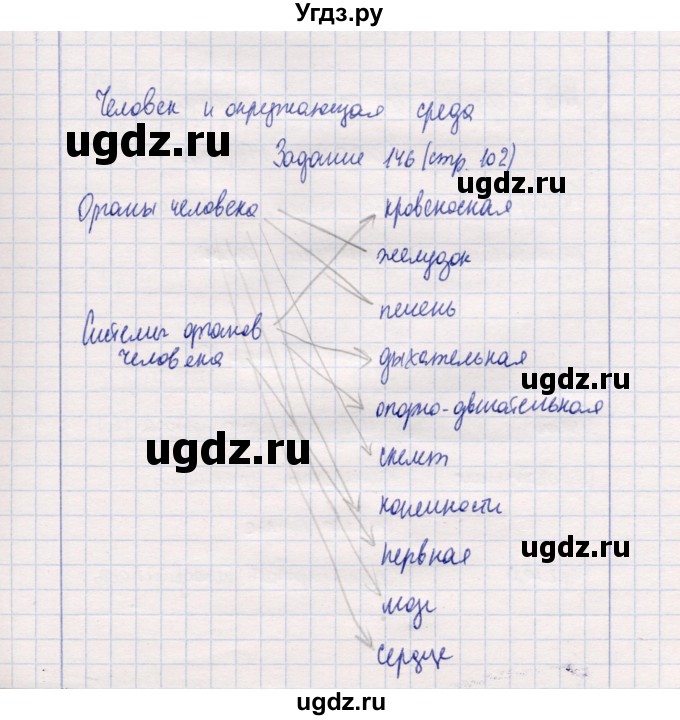 Угдз.ру
Человек и окружающая среда
ugdz.ru
Задание 146 (стр. 102)
ugdz.ru
Органы человека
кровеносная
желудок
печень
Системы органов
человека
дыхательная
ugdz.ru
опорно-двигательная
ugdz.ru
скелет
конечности
нервная
ugdz.ru
мозг
сердце
ugdz.ru